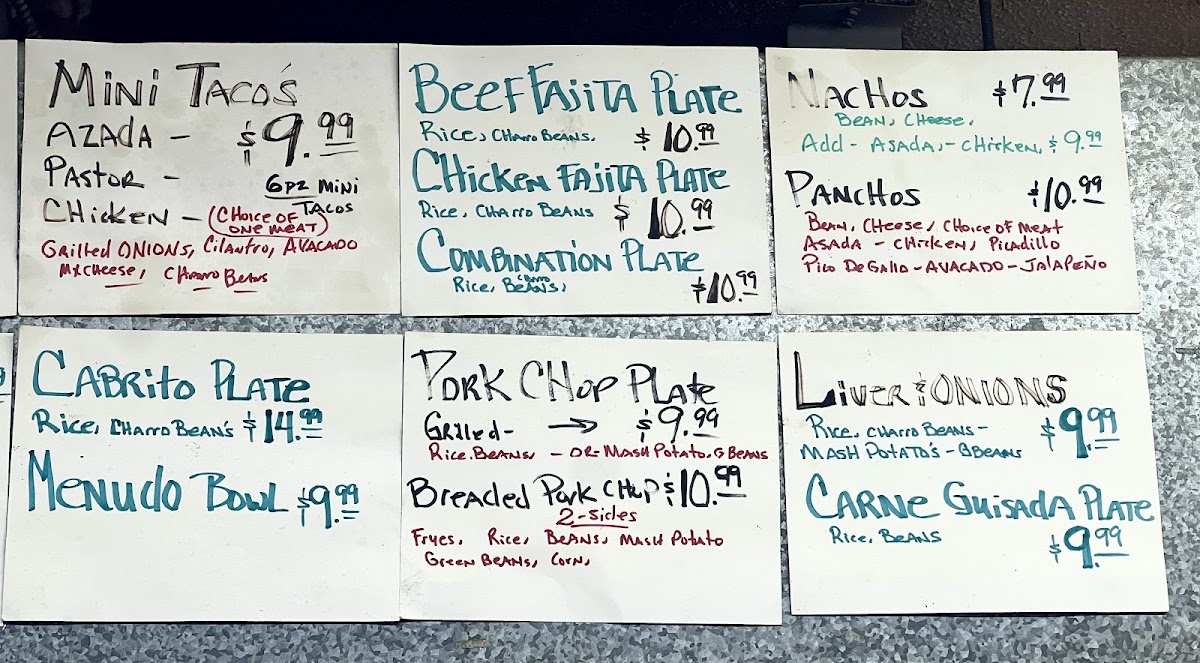 Mini Taco's
Azada - $9.99
Pastor - 6pz Mini
Chicken - (Choice of Tacos
one meat)
Grilled Onions, Cilantro, Avacado
Mxcheese, Charro Beans
Beef Fajita Plate
Rice, Charro Beans. $10.99
Chicken Fajita Plate
Rice, Charro Beans $10.99
Combination Plate
Rice, Charro Bean's, $10.99
Nachos $7.99
Bean, Cheese,
Add - Asada, - Chicken, $9.99
Panchos $10.99
Bean, Cheese, Choice of meat
Asada - Chicken, Picadillo
Pico De Gallo - Avacado - Jalapeño
Cabrito Plate
Rice, Charro Bean's $14.99
Menudo Bowl $9.99
Pork Chop Plate
Grilled- → $9.99
Rice, Beans, - or - Mash Potato, G Beans
Breaded Pork Chop $10.99
2-sides
Fryes, Rice, Beans, Mash Potato
Green Beans, Corn,
Liver & Onions
Rice, Charro Beans - $9.99
Mash Potato's - GBeans
Carne Guisada Plate
Rice, Beans $9.99